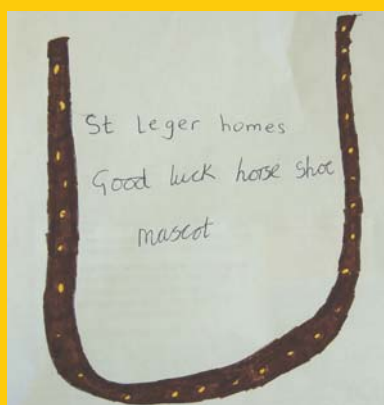 St Leger homes
Good luck horse shoe
mascot